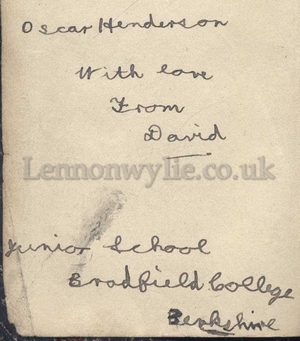 Oscar Henderson
With love
From
David
Lennonwylie.co.uk
Junior School
Bradfield College
Berkshire